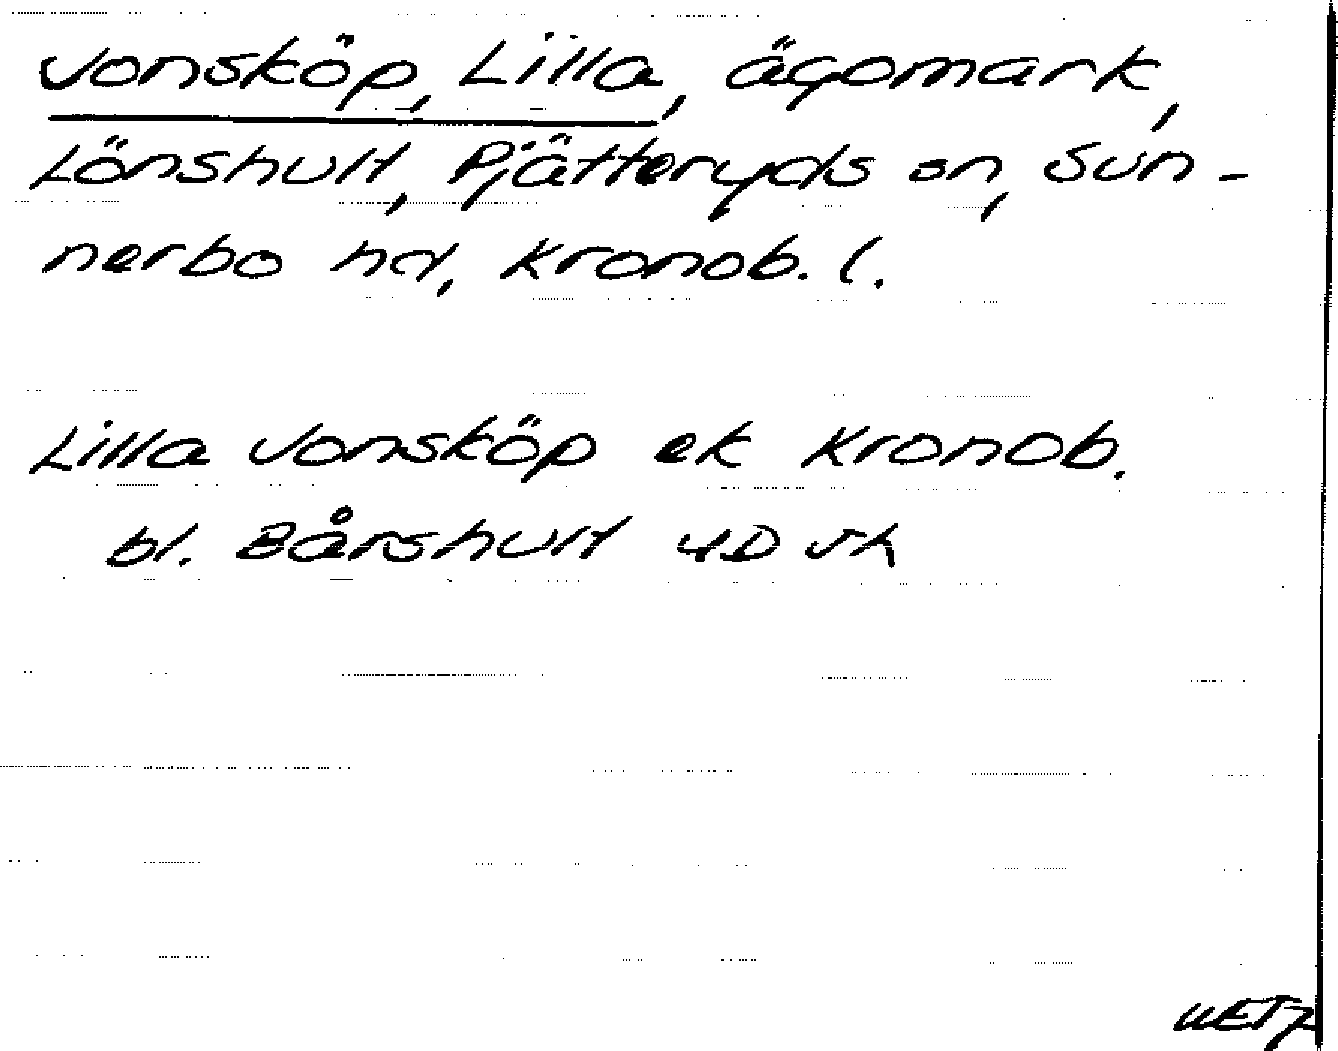 Jonsköp, Lilla, ägomark,
Lönshult, Pjätteryds sn, Sun-
nerbo hd, Kronob. l.
Lilla Jonsköp ek Kronob.
bl. Bårshult 4D